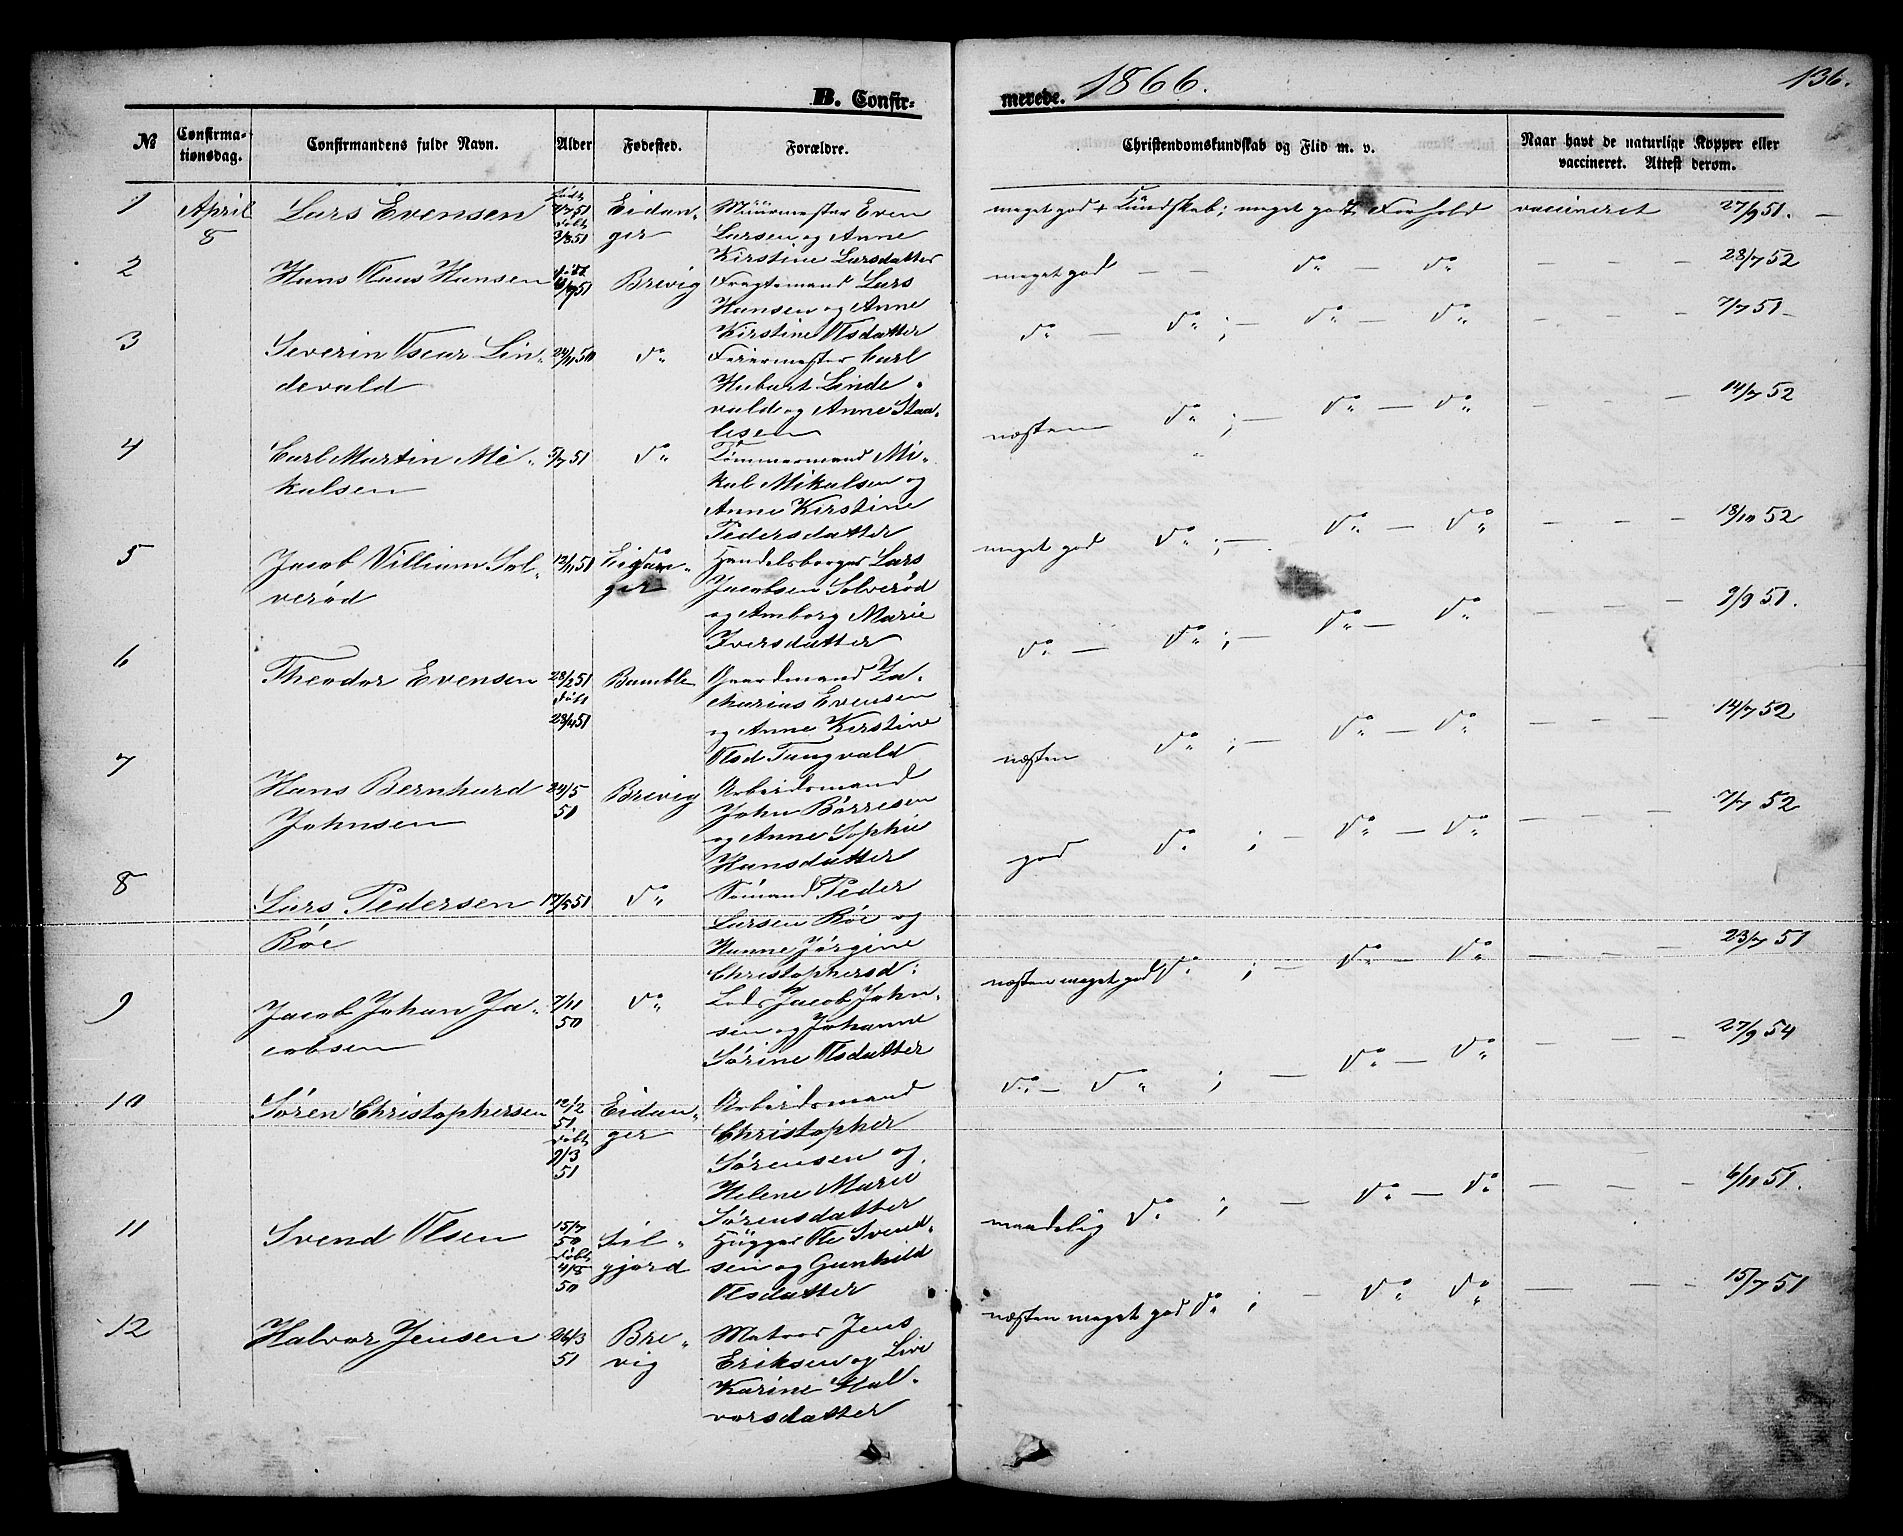 B. Confir- merede. 1866. 136.
№ Confirma-tionsdag. Confirmandens fulde Navn. Alder Fødested. Forældre. Christendomskundskab og Flid m. v. Naar havt de naturlige Kopper eller vaccineret. Attest derom.
1 April 8 Lars Evensen født 7/7 51 døbt 3/8 51 Eidan-
ger
Muurmester Even
Larsen og Anne
Kirstine Larsdatter
meget god Kundskab; meget godt Forhold vaccineret 27/9 51. —
2 Hans Claus Hansen 51 Brevig
Fragtemand Lars
Hansen og Anne
Kirstine Olsdatter
meget god — — do — do — — — 28/7 52
3 Severin Oscar Lin-
devald
24/11 50 do
Feiermester Carl
Hubart Linde-
vald og Anne Staa-
lesen
do — do ; — do — do — — — 7/7 51
4 Carl Martin Mi-
kalsen
5/7 51 do
Tømmermand Mi-
kal Mikalsen og
Anne Kirstine
Pedersdatter
næsten do ; — do — do — — — 14/7 52
5 Jacob Villiam Sol-
verød
12/11 51 Eidan-
ger
Handelsborger Lars
Jacobsen Solverød
og Amborg Marie
Iversdatter
meget god do ; — do — do — — — 18/10 52
6 Theodor Evensen 23/2 51 døbt 23/4 51 Bamble
Gaardmand Za-
charias Evensen
og Anne Kirstine
Olsd Tangvald
do — do ; — do — do — — — 9/9 51.
7 Hans Bernhard
Johnsen
24/5 51 Brevig
Arbeidsmand
John Børresen
og Anne Sophie
Hansdatter
næsten do ; — do — do — — — 14/7 52
8 Lars Pedersen
Røe
17/5 51 do
Sømand Peder
Larsen Røe og
Hanne Jørgine
Christophersd:
god do ; — do — do — — — 7/7 52
9 Jacob Johan Ja-
cobsen
7/11 50 do
Lods Jacob John-
sen og Johanne
Sørine Olsdatter
næsten meget god do ; — do — do — — — 23/7 51
10 Søren Christophersen 12/2 51 døbt 9/3 51 Eidan-
ger
Arbeidsmand
Christopher
Sørensen og
Helene Marie
Sørensdatter
do — do ; — do — do — — — 27/9 54
11 Svend Olsen 15/7 50 døbt 4/8 50 Sil-
gjord
Hugger Ole Svend-
sen og Gunhild
Olsdatter
maadelig do ; — do — do — — — 6/11 51.
12 Halvor Jensen 26/3 51 Bre-
vig
Matros Jens
Eriksen og Live
Karine Hal-
vorsdatter
næsten meget god do ; — do do — — — 15/7 51